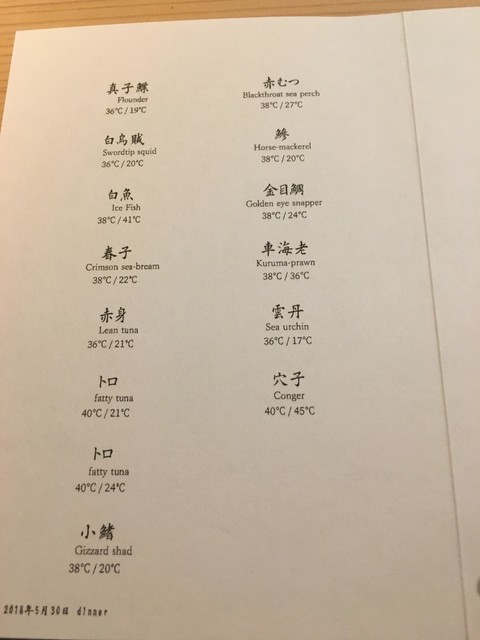 真子鰈
Flounder
36℃ / 19℃
白烏賊
Swordtip squid
36℃ / 20℃
白魚
Ice Fish
38℃ / 41℃
春子
Crimson sea-bream
38℃ / 22℃
赤身
Lean tuna
36℃ / 21℃
トロ
fatty tuna
40℃ / 21℃
トロ
fatty tuna
40℃ / 24℃
小鰭
Gizzard shad
38℃ / 20℃
赤むつ
Blackthroat sea perch
38℃ / 27℃
鰺
Horse-mackerel
38℃ / 20℃
金目鯛
Golden eye snapper
38℃ / 24℃
車海老
Kuruma-prawn
38℃ / 36℃
雲丹
Sea urchin
36℃ / 17℃
穴子
Conger
40℃ / 45℃
2018年5月30日 dinner